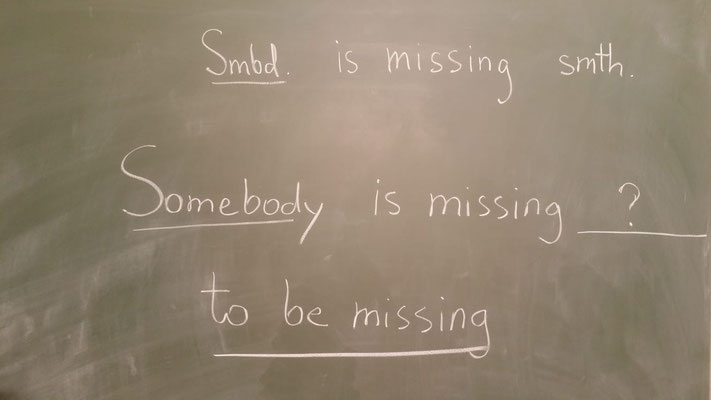 Smbd. is missing smth.
Somebody is missing ?
to be missing